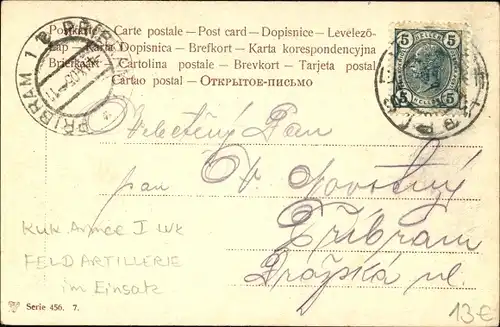 Postkarte — Carte postale — Post card — Dopisnice — Levelező-
Lap — Karta Dopisnica — Brefkort — Karta korespondencyjna
Briefkaart — Cartolina postale — Brevkort — Tarjeta postal
Cartao postal — Открытое-письмо
PŘIBRAM 1
PŘIBRAM
5 5
HELLER HELLER
5 HELLER 5
Velectěný Pán
pan
Novotný
Příbram
Dražská ul.
KuK Armee I WK
FELD ARTILLERIE
im Einsatz
Serie 456. 7.
13€